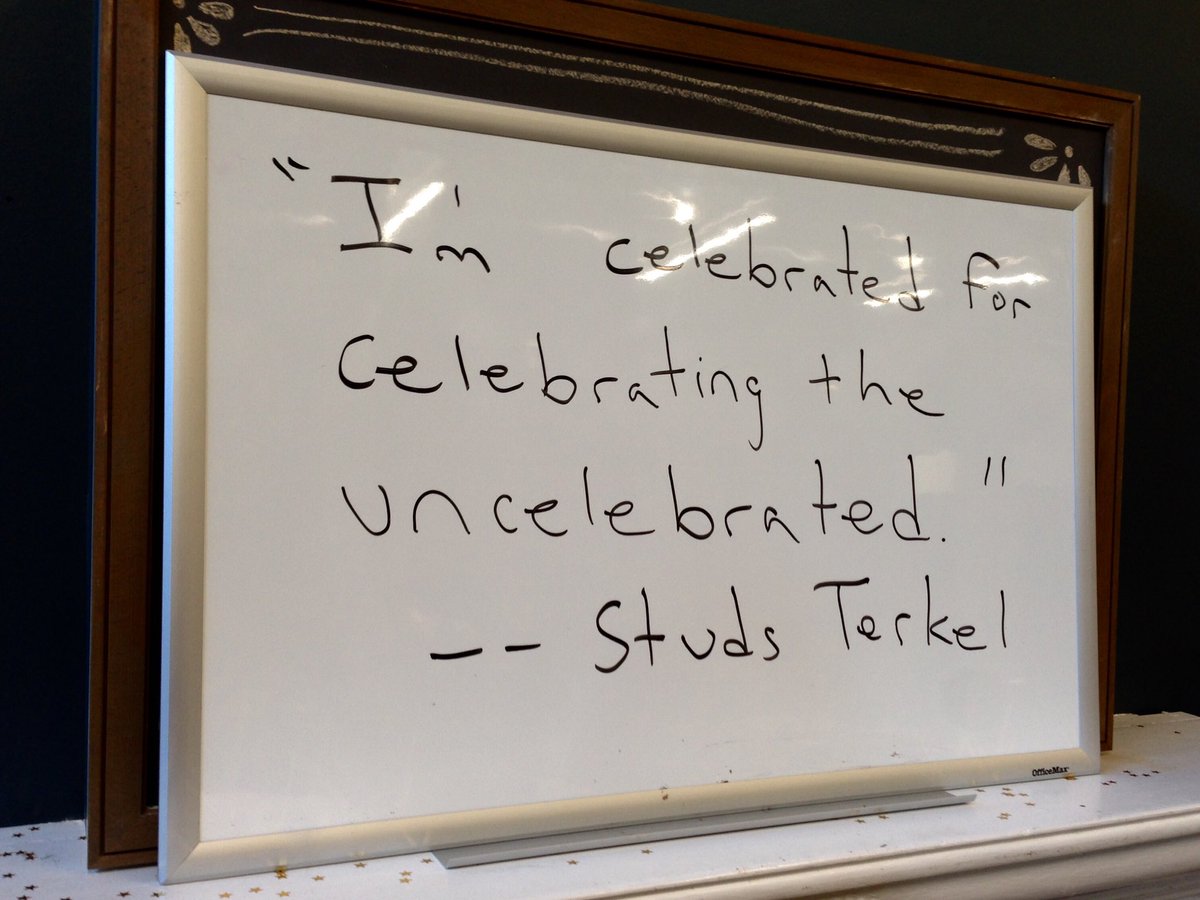 "I'm celebrated for
celebrating the
uncelebrated."
-- Studs Terkel
OfficeMax